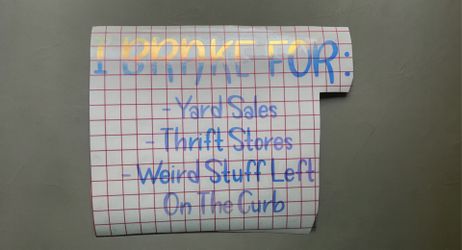 I BRAKE FOR:
- Yard Sales
- Thrift Stores
- Weird Stuff Left
On The Curb